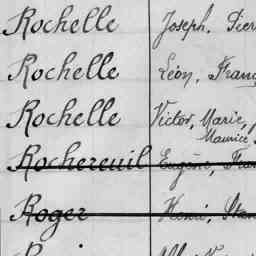 Rochelle Joseph, Pier
Rochelle Léon, Franç
Rochelle Victor, Marie,
Maurice
Rochereuil Eugène, Fra
Roger Henri, Stan